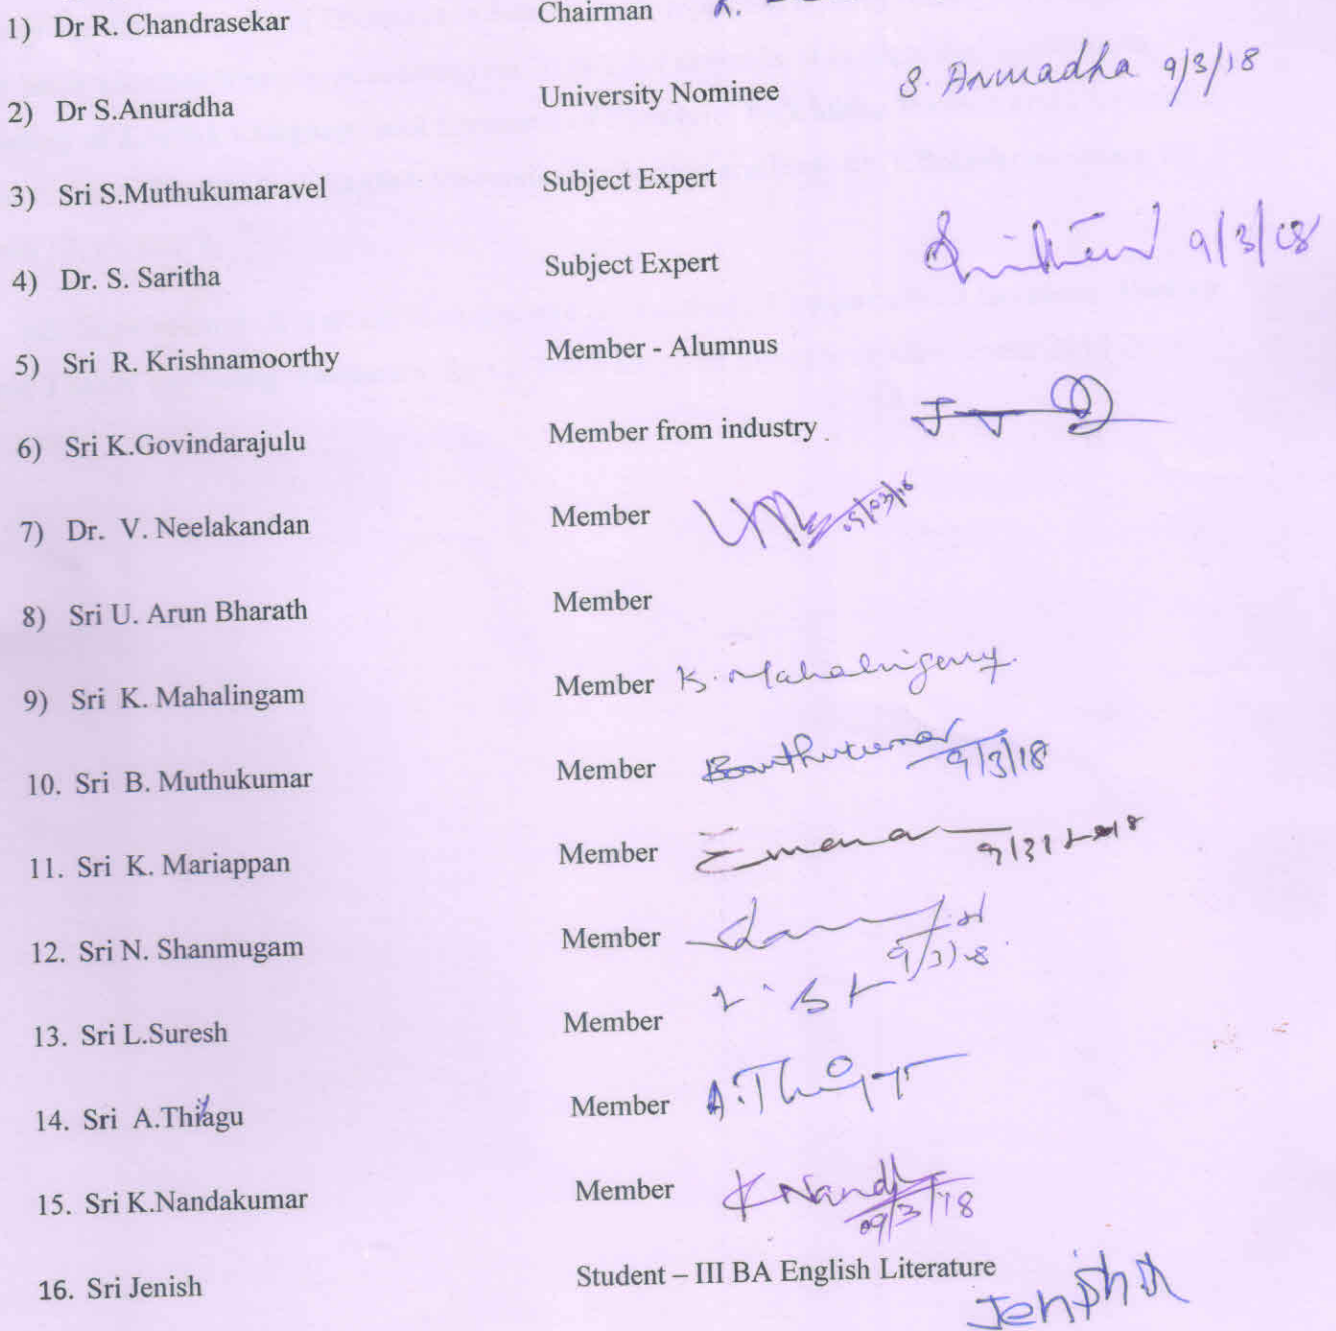 1) Dr R. Chandrasekar Chairman R.
2) Dr S.Anuradha University Nominee S. Anuradha 9/3/18
3) Sri S.Muthukumaravel Subject Expert
4) Dr. S. Saritha Subject Expert 9/3/18
5) Sri R. Krishnamoorthy Member - Alumnus
6) Sri K.Govindarajulu Member from industry
7) Dr. V. Neelakandan Member 09/03/18
8) Sri U. Arun Bharath Member
9) Sri K. Mahalingam Member K. Mahalingam
10. Sri B. Muthukumar Member 9/3/18
11. Sri K. Mariappan Member 9/3/2018
12. Sri N. Shanmugam Member 9/3/18
13. Sri L.Suresh Member
14. Sri A.Thiyagu Member A.Thiyagu
15. Sri K.Nandakumar Member K Nandh 09/3/18
16. Sri Jenish Student – III BA English Literature
Jenish